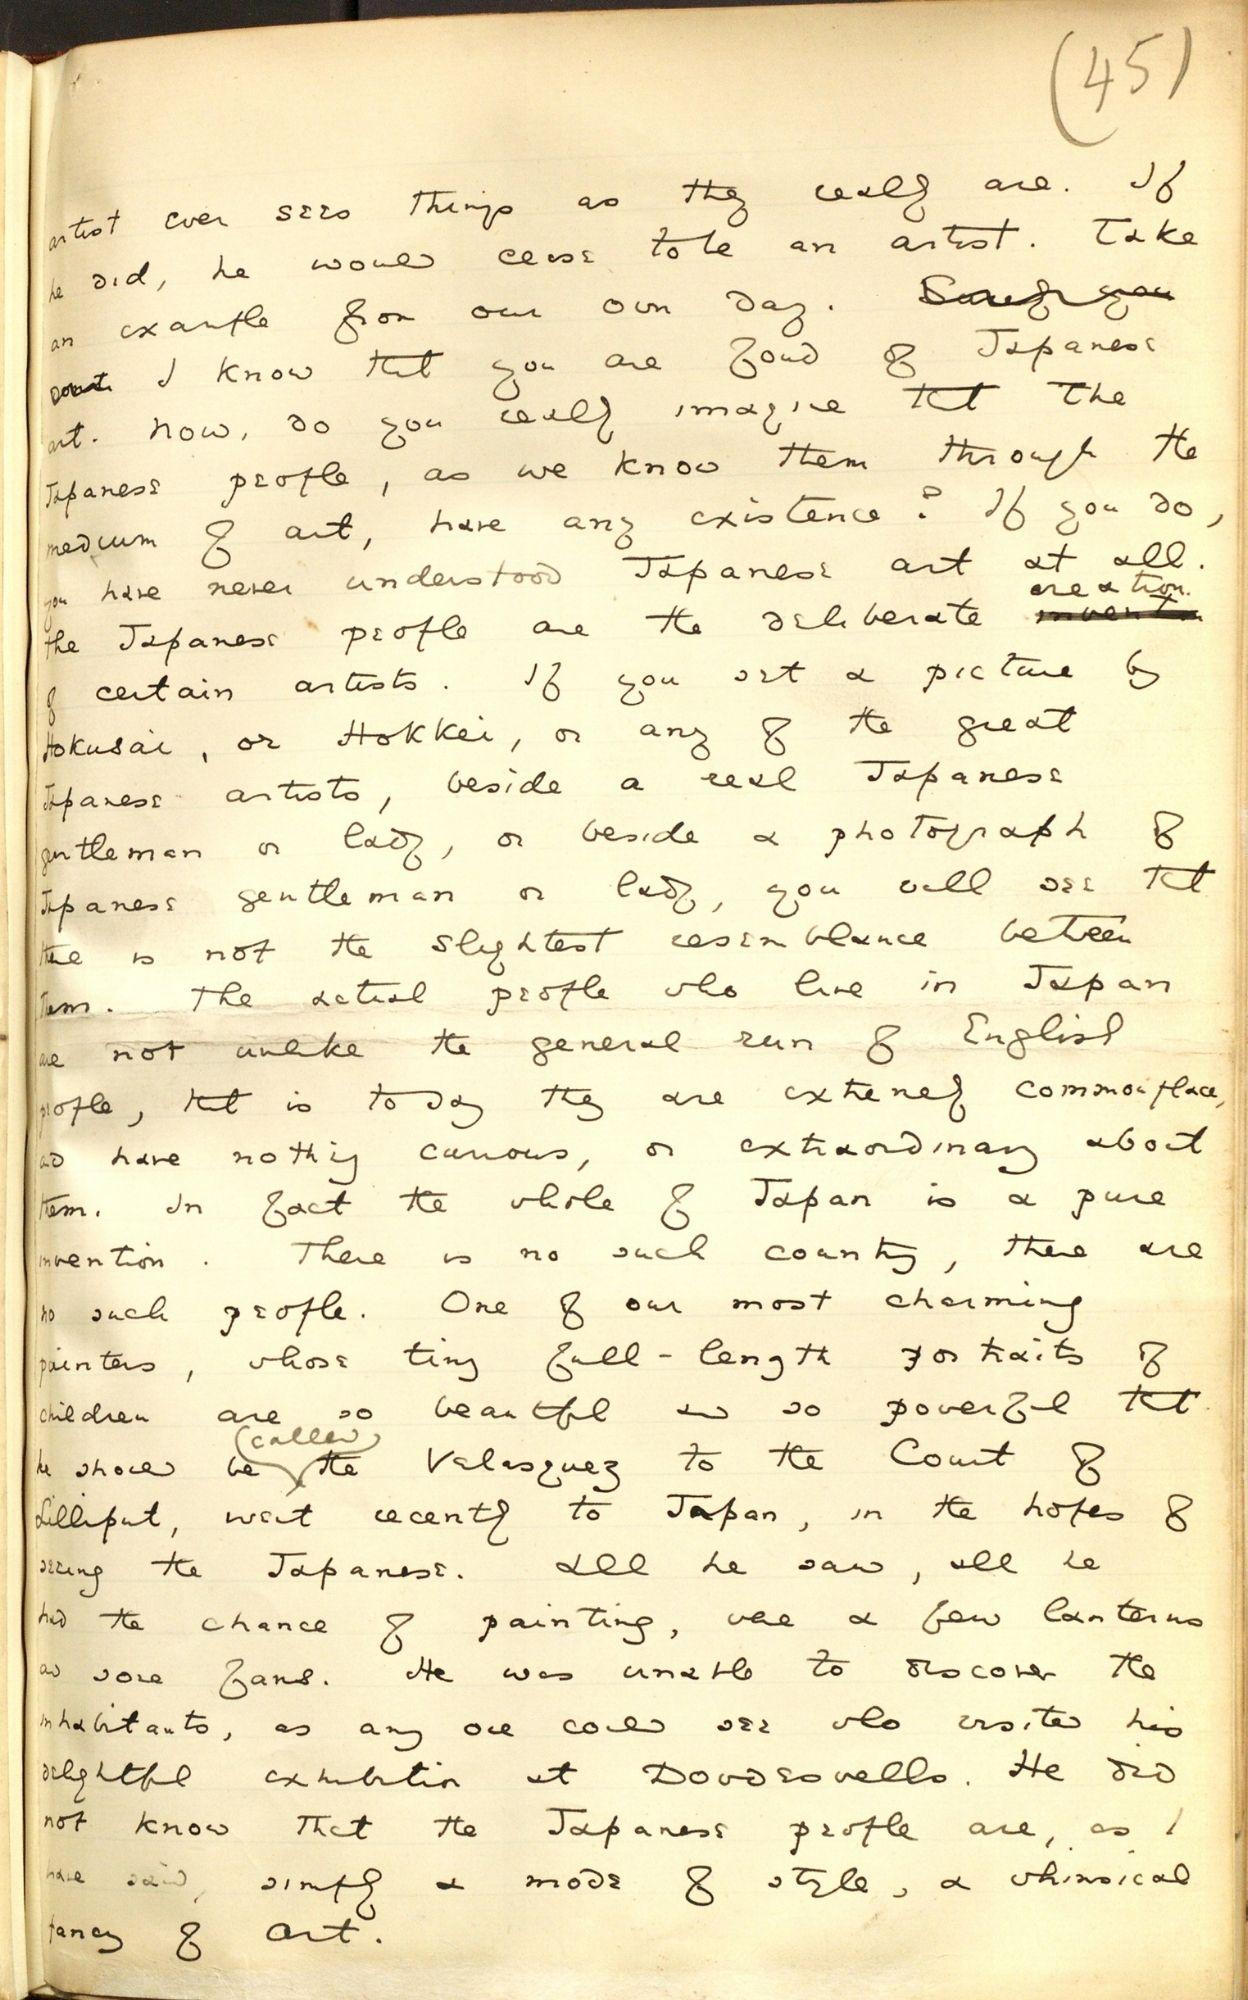 (45)
artist ever sees things as they really are. If
he did, he would cease to be an artist. Take
an example from our own day. Surely you
doubt I know that you are fond of Japanese
art. Now, do you really imagine that the
Japanese people, as we know them through the
medium of art, have any existence? If you do,
you have never understood Japanese art at all.
creation
the Japanese people are the deliberate invention
of certain artists. If you set a picture by
Hokusai, or Hokkei, or any of the great
Japanese artists, beside a real Japanese
gentleman or lady, or beside a photograph of
Japanese gentleman or lady, you will see that
there is not the slightest resemblance between
them. The actual people who live in Japan
are not unlike the general run of English
people, that is to say they are extremely commonplace,
and have nothing curious, or extraordinary about
them. In fact the whole of Japan is a pure
invention. There is no such country, there are
no such people. One of our most charming
painters, whose tiny full-length portraits of
children are so beautiful and so powerful that
(called)
he should be the Velasquez to the Court of
Lilliput, went recently to Japan, in the hopes of
seeing the Japanese. All he saw, all he
had the chance of painting, were a few lanterns
and some fans. He was unable to discover the
inhabitants, as any one could see who visited his
delightful exhibition at Dowdeswells. He did
not know that the Japanese people are, as I
have said, simply a mode of style, a whimsical
fancy of art.